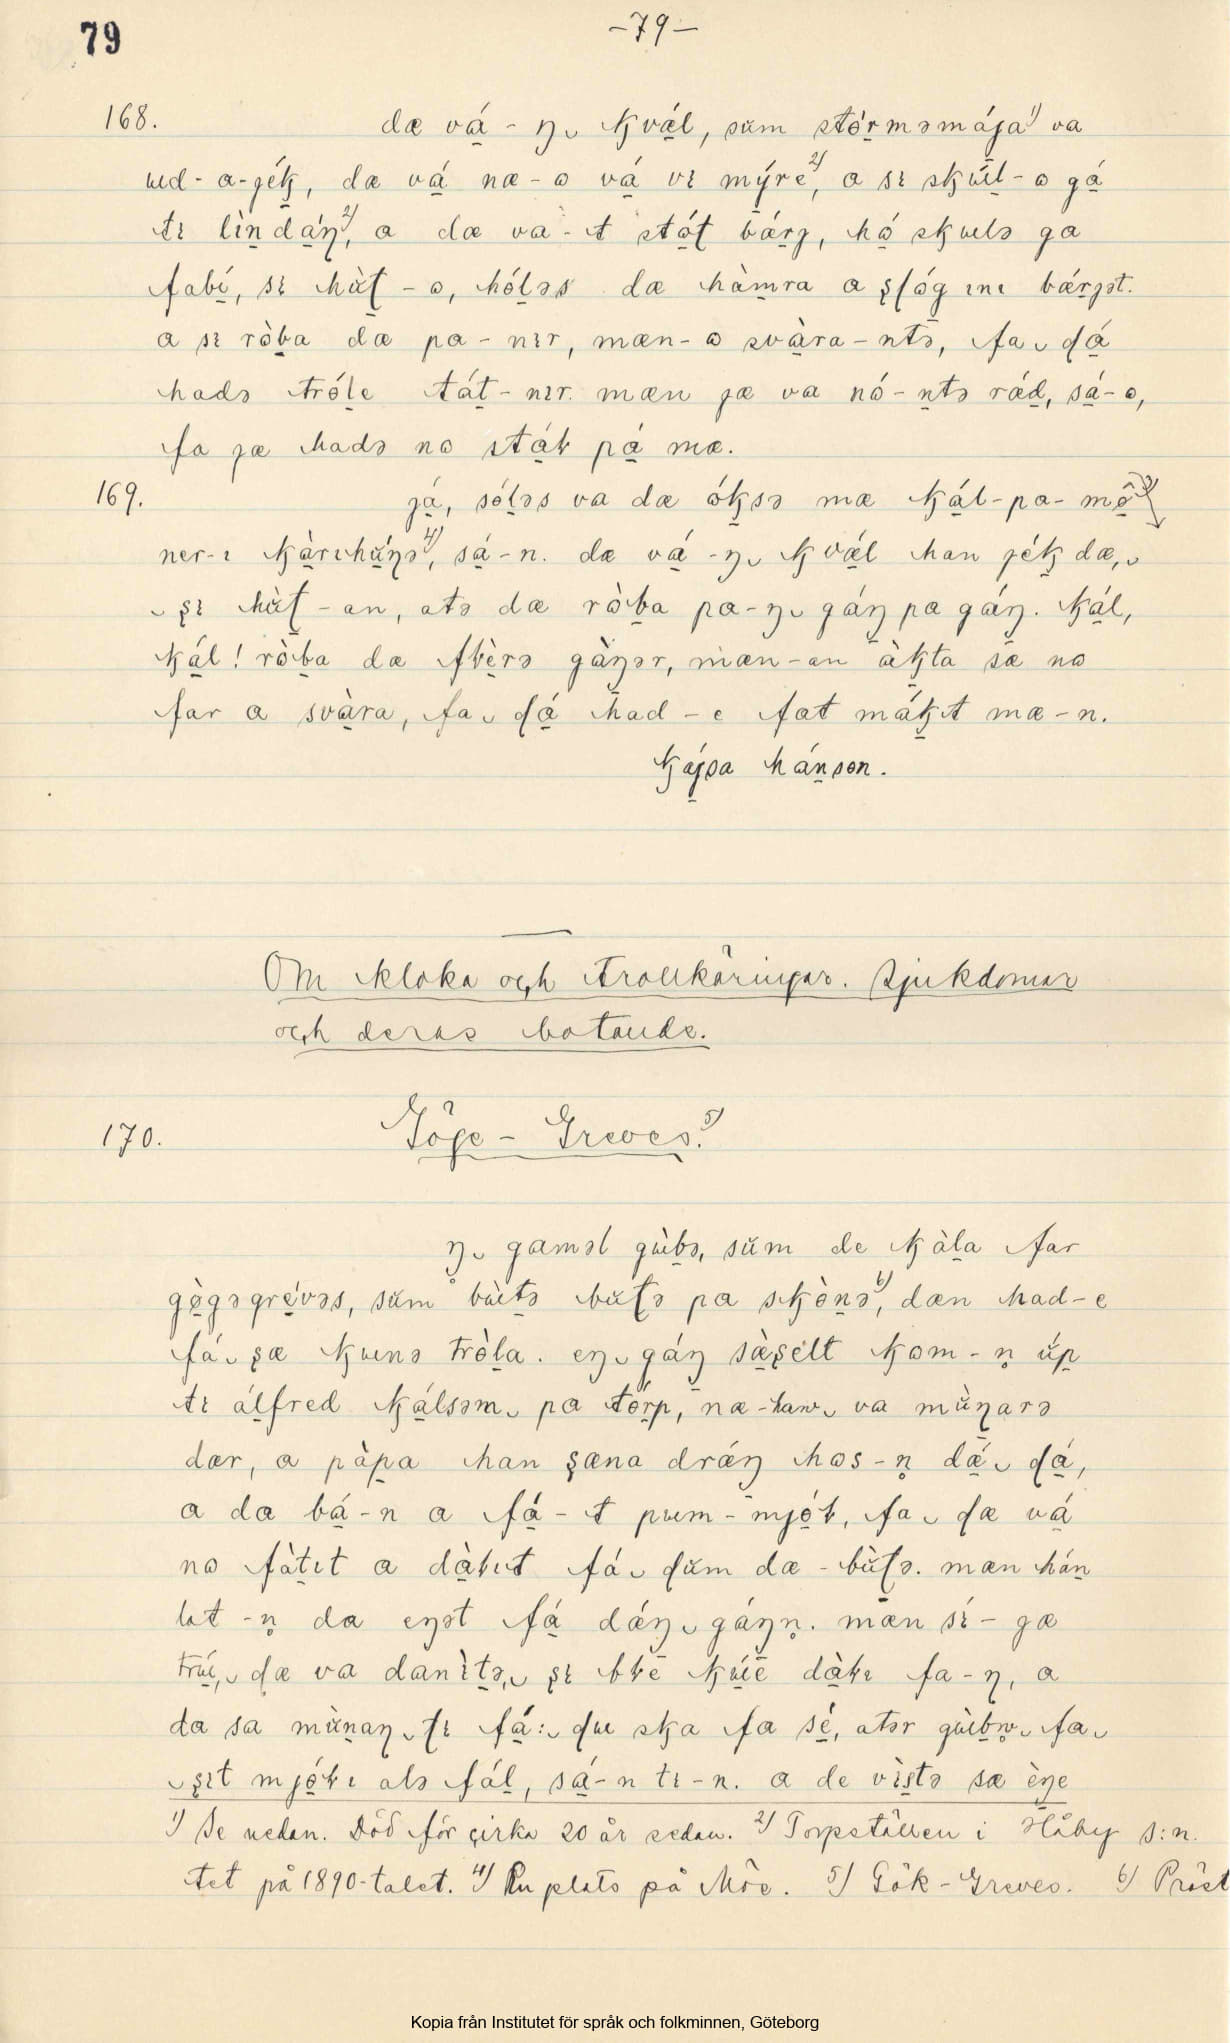 79
-79-
168. dæ vá̱ - ŋ ᴗ kvǽ̱l, sŭm stǿ̱rməmája¹⁾ va
ud - a - jéḵ, dæ vá̱ næ - ɷ vá̱ vɪ mýre²⁾, a sɪ skúḻ - ɷ gá̱
tɪ lìṉda̱ŋ²⁾, a dæ va - t stó̱ʈ bǽrj, hó̱ skulə ga
fabí̱, sɪ hùʈ - ɷ, hó̱ləs dæ hàm̱ra a ʂʈóg̱ ɪnɪ bǽrjət.
a sɪ rò̱ba dæ pa - nɪr, mæn - ɷ svà̱ra - ntə, fa ᴗ ɖá̱
hadə tróḻe táṯ - nɪr. mæn jæ va nó - ṉtə rǽḏ, sá̱ - ɷ,
fa jæ hadə nɷ stá̱k pá̱ mæ.
169. já̱, só̱ləs va dæ óḵsə mæ ká̱l - pa - mø̱̂³⁾
ner - ɪ kà̱rɪhŭ̱ŋə⁴⁾, sá̱ - n. dæ vá̱ - ŋ ᴗ kvǽ̱l han jéḵ dæ, ᴗ
ᴗ ʂɪ hùʈ - an, atə dæ rò̱ba pa - ŋ ᴗ gáŋ̱ pa gáŋ̱. ká̱l,
ká̱l! rò̱ba dæ fkè̱rə gàŋ̱ər, mæn - an àḵta sæ nɷ
far a svà̱ra, fa ᴗ ɖá̱ had - e fat máḵt mæ - n.
kája̱sa há̱nsən.
Om kloka och trollkäringar. Sjukdomar
och deras botande.
170. Göge - Greves.⁵⁾
ŋ ᴗ gaməl gùbə, sŭm de kàḻa far
gø̱̀gəgré̱vəs, sŭm bùtə búʈə pa skø̱̀nə⁶⁾, dæn had - e
fá ᴗ ʂæ kunə tròḻa. eŋ ᴗ gáŋ̱ sæ̱̀ʂelt kɷm - ṇ úp̱
tɪ áḻfred ká̱lsəm ᴗ pa tǿ̱rp, næ - han ᴗ va mùŋarə
dær, a pàp̱a han ʂæna dráŋ̱ hɷs - ṇ dǽ̱ ᴗ ɖá̱,
a da bá̱ - n a fá̱ - t pum - mjǿ̱k, fa ᴗ ɖæ vá̱
nɷ fàṯɪt a dà̱kɪt fá ᴗ ɖŭm dæ - bùʈə. mæn há̱n
lɷt - ṇ da eŋət fá̱ dǽŋ ᴗ gáŋṇ. mæn sí - gæ
trú̱, ᴗ ɖæ va danìṯə, ᴗ ʂɪ bkē kúē dà̱kɪ fa - ŋ, a
da sa mùṉaŋ ᴗ ʈɪ fá̱: ᴗ ɖu ska fa sé̱, atər gùbṇ ᴗ fa ᴗ
ᴗ ʂɪt mjǿ̱kɪ alə fáḻ, sá̱ - n tɪ - n. a de vìs̱tə sæ èŋe
¹⁾ Se nedan. Död för cirka 20 år sedan. ²⁾ Torpställen i Håby s:n.
tet på 1890-talet. ⁴⁾ En plats på Möe. ⁵⁾ Gök - Greves. ⁶⁾ Präst
Kopia från Institutet för språk och folkminnen, Göteborg